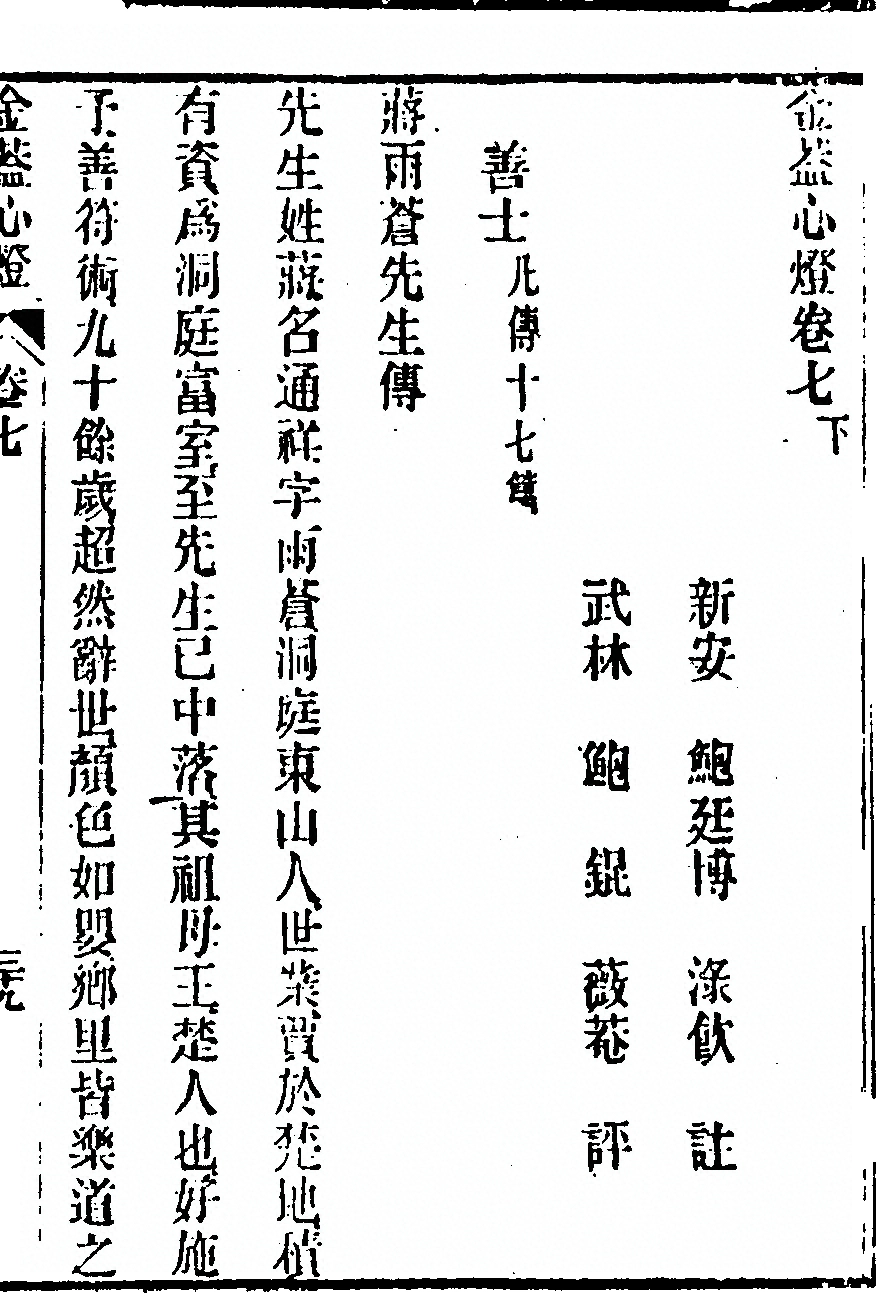 金蓋心燈卷七下
新安 鮑廷博 淥飲 註
武林 鮑錕 薇菴 評
善士 凡傳十七篇
蔣雨蒼先生傳
先生姓蔣名通祥字雨蒼洞庭東山人世業賈於楚地積
有資爲洞庭富室至先生已中落其祖母王楚人也好施
予善符術九十餘歲超然辭世顏色如嬰鄉里皆樂道之
金蓋心燈 卷七